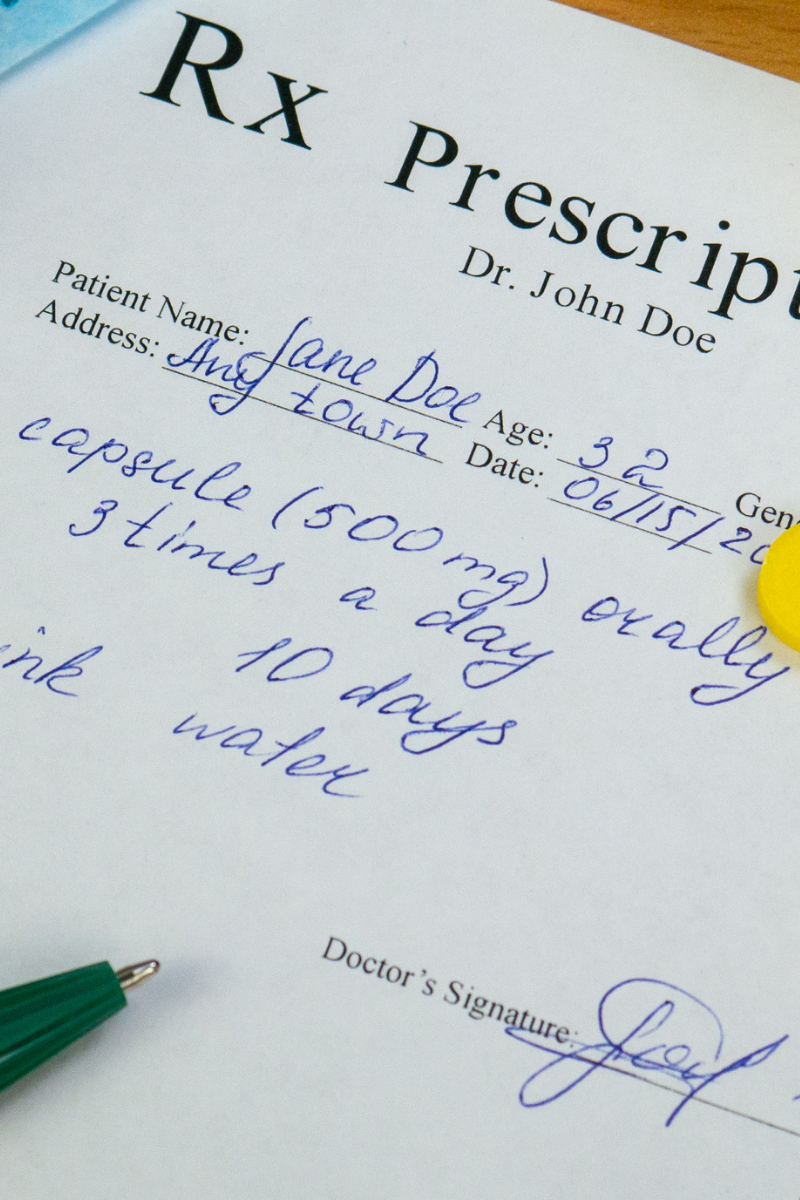 Rx Prescript
Dr. John Doe
Patient Name: Jane Doe Age: 32 Gen
Address: Any town Date: 06/15/20
capsule (500 mg) orally
3 times a day
10 days
ink water
Doctor's Signature: